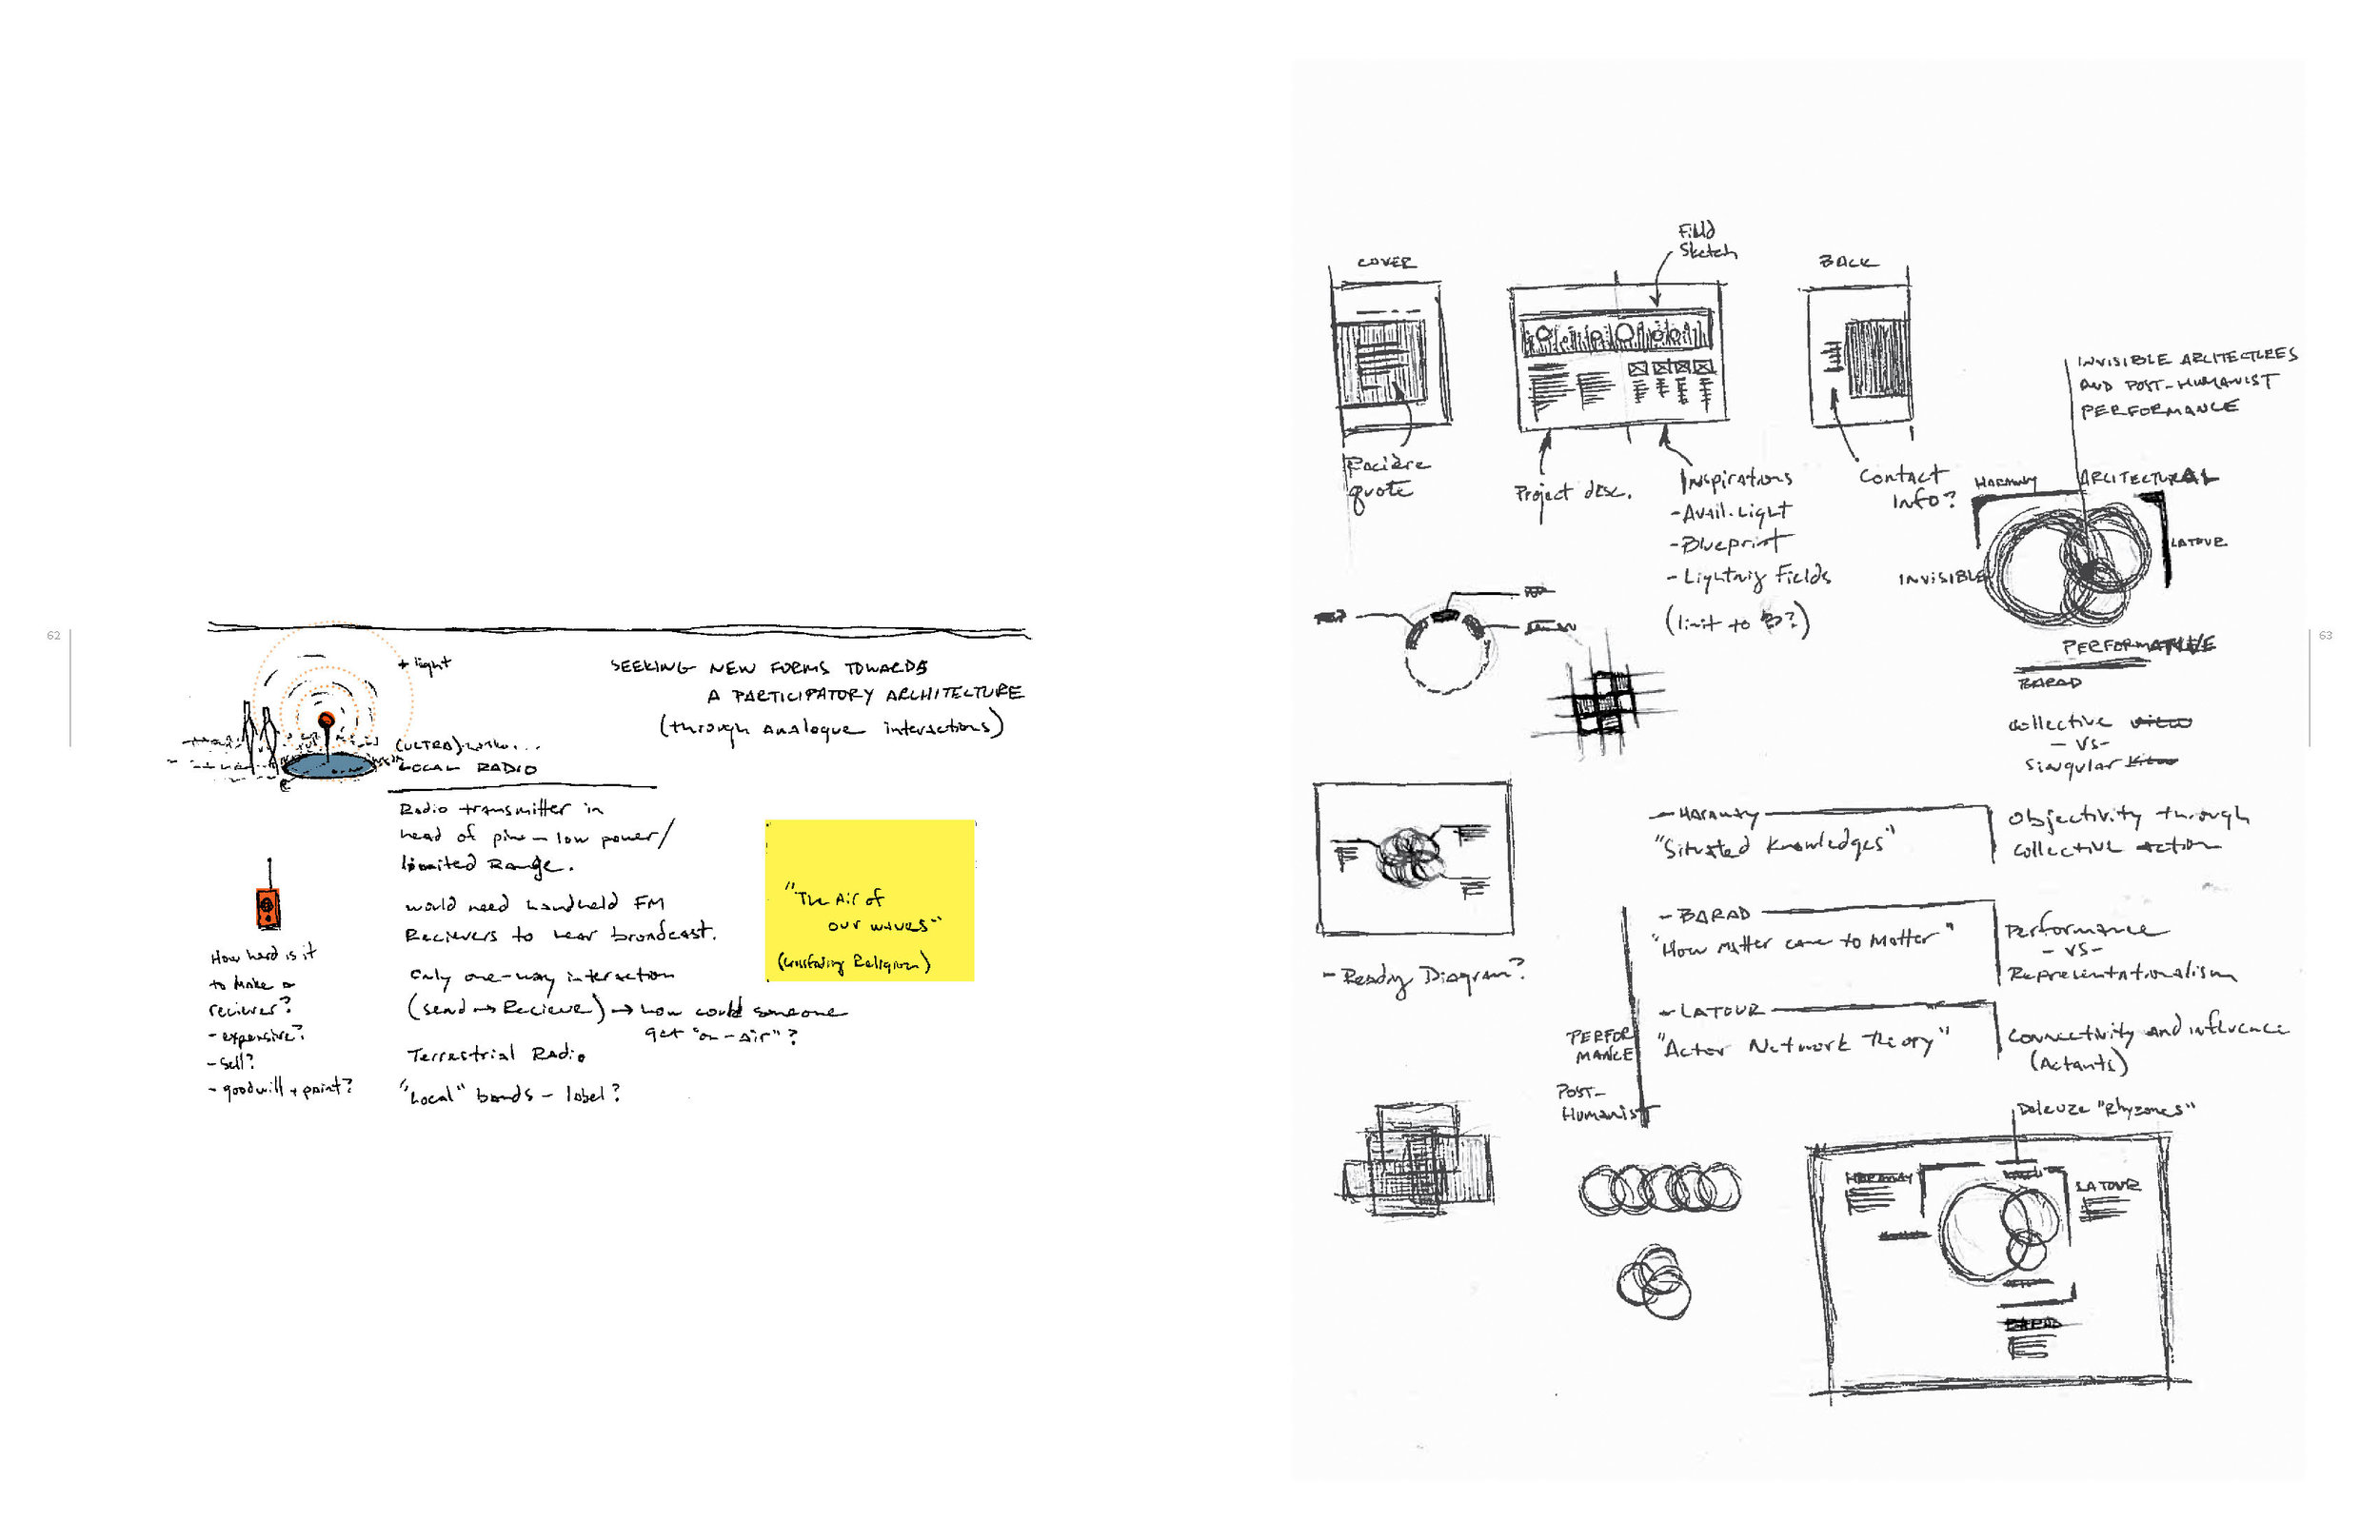 62
+ light
SEEKING NEW FORMS TOWARDS
A PARTICIPATORY ARCHITECTURE
(through analogue interactions)
(ULTRA)
LOCAL RADIO
Radio transmitter in
head of pin — low power/
limited Range.
would need handheld FM
Recievers to hear broadcast.
only one-way interaction
(send → Recieve) → how could someone
get "on-air"?
Terrestrial Radio
"Local" bands - label?
How hard is it
to make a
reciever?
- expensive?
- sell?
- goodwill + paint?
"The Air of
our waves"
(Crossfading Religion)
COVER
Field
Sketch
BACK
Racière
quote
Project desc.
Inspirations
- Avail. Light
- Blueprint
- Lightnig Fields
(limit to 3?)
Contact
info?
INVISIBLE ARCITECTURES
AND POST-HUMANIST
PERFORMANCE
HARAWAY
ARCITECTURAL
LATOUR
INVISIBLE
PERFORMATIVE
BARAD
63
collective view
- vs -
singular view
- Haraway
"Situated Knowledges"
Objectivity through
collective action
- BARAD
"How matter came to Matter"
Performance
- vs -
Representationalism
- LATOUR
"Actor Network Theory"
Connectivity and influence
(Actants)
- Ready Diagram?
PERFOR
MANCE
POST-
Humanist
Deleuze "Rhyzomes"
HARAWAY
LATOUR
BARAD